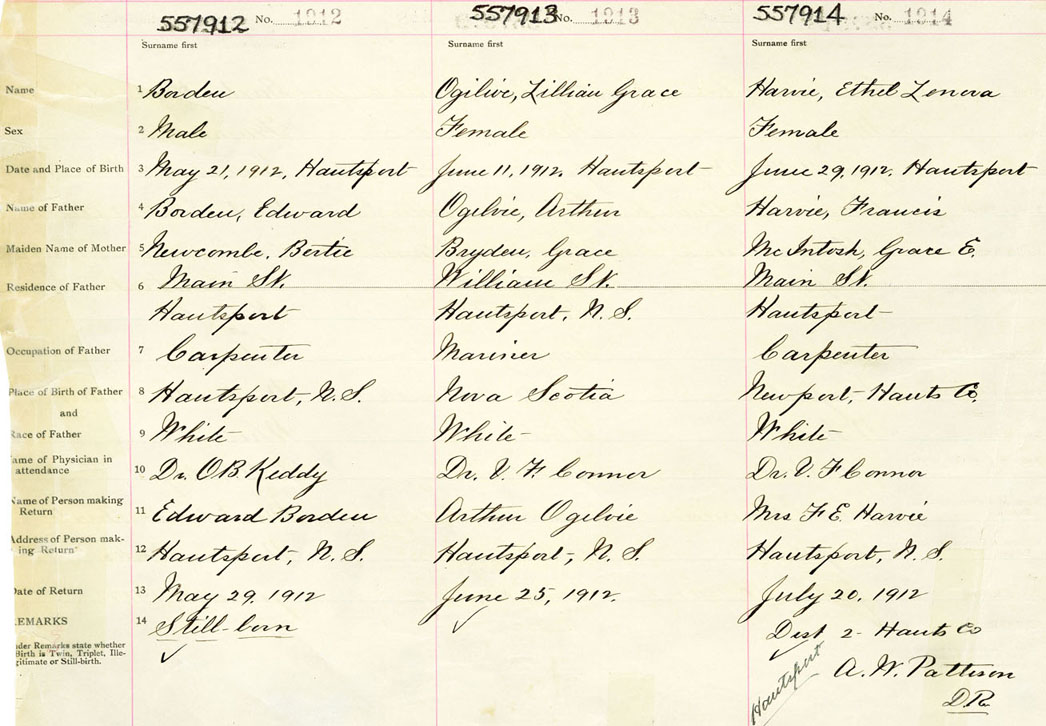 557912 No. 1912 557913 No. 1913 557914 No. 1914
Surname first Surname first Surname first
Name 1 Borden Ogilvie, Lillian Grace Harvie, Ethel Zenova
Sex 2 Male Female Female
Date and Place of Birth 3 May 21, 1912, Hantsport June 11, 1912. Hantsport June 29, 1912. Hantsport
Name of Father 4 Borden, Edward Ogilvie, Arthur Harvie, Francis
Maiden Name of Mother 5 Newcombe, Bertie Bryden, Grace McIntosh, Grace E.
Residence of Father 6 Main St. William St. Main St.
Hantsport Hantsport, N. S. Hantsport
Occupation of Father 7 Carpenter Mariner Carpenter
Place of Birth of Father 8 Hantsport, N. S. Nova Scotia Newport, Hants Co.
and
Race of Father 9 White White White
ame of Physician in
attendance 10 Dr. O B. Keddy Dr. V. F. Connor Dr. V. F Connor
Name of Person making
Return 11 Edward Borden Arthur Ogilvie Mrs F E. Harvie
Address of Person mak-
ing Return 12 Hantsport, N. S. Hantsport, N. S. Hantsport, N. S.
Date of Return 13 May 29, 1912 June 25, 1912. July 20, 1912
EMARKS 14 Still-born Dist 2- Hants Co
nder Remarks state whether
Birth is Twin, Triplet, Ille-
gitimate or Still-birth.
Hantsport A. W. Pattison
D. R.